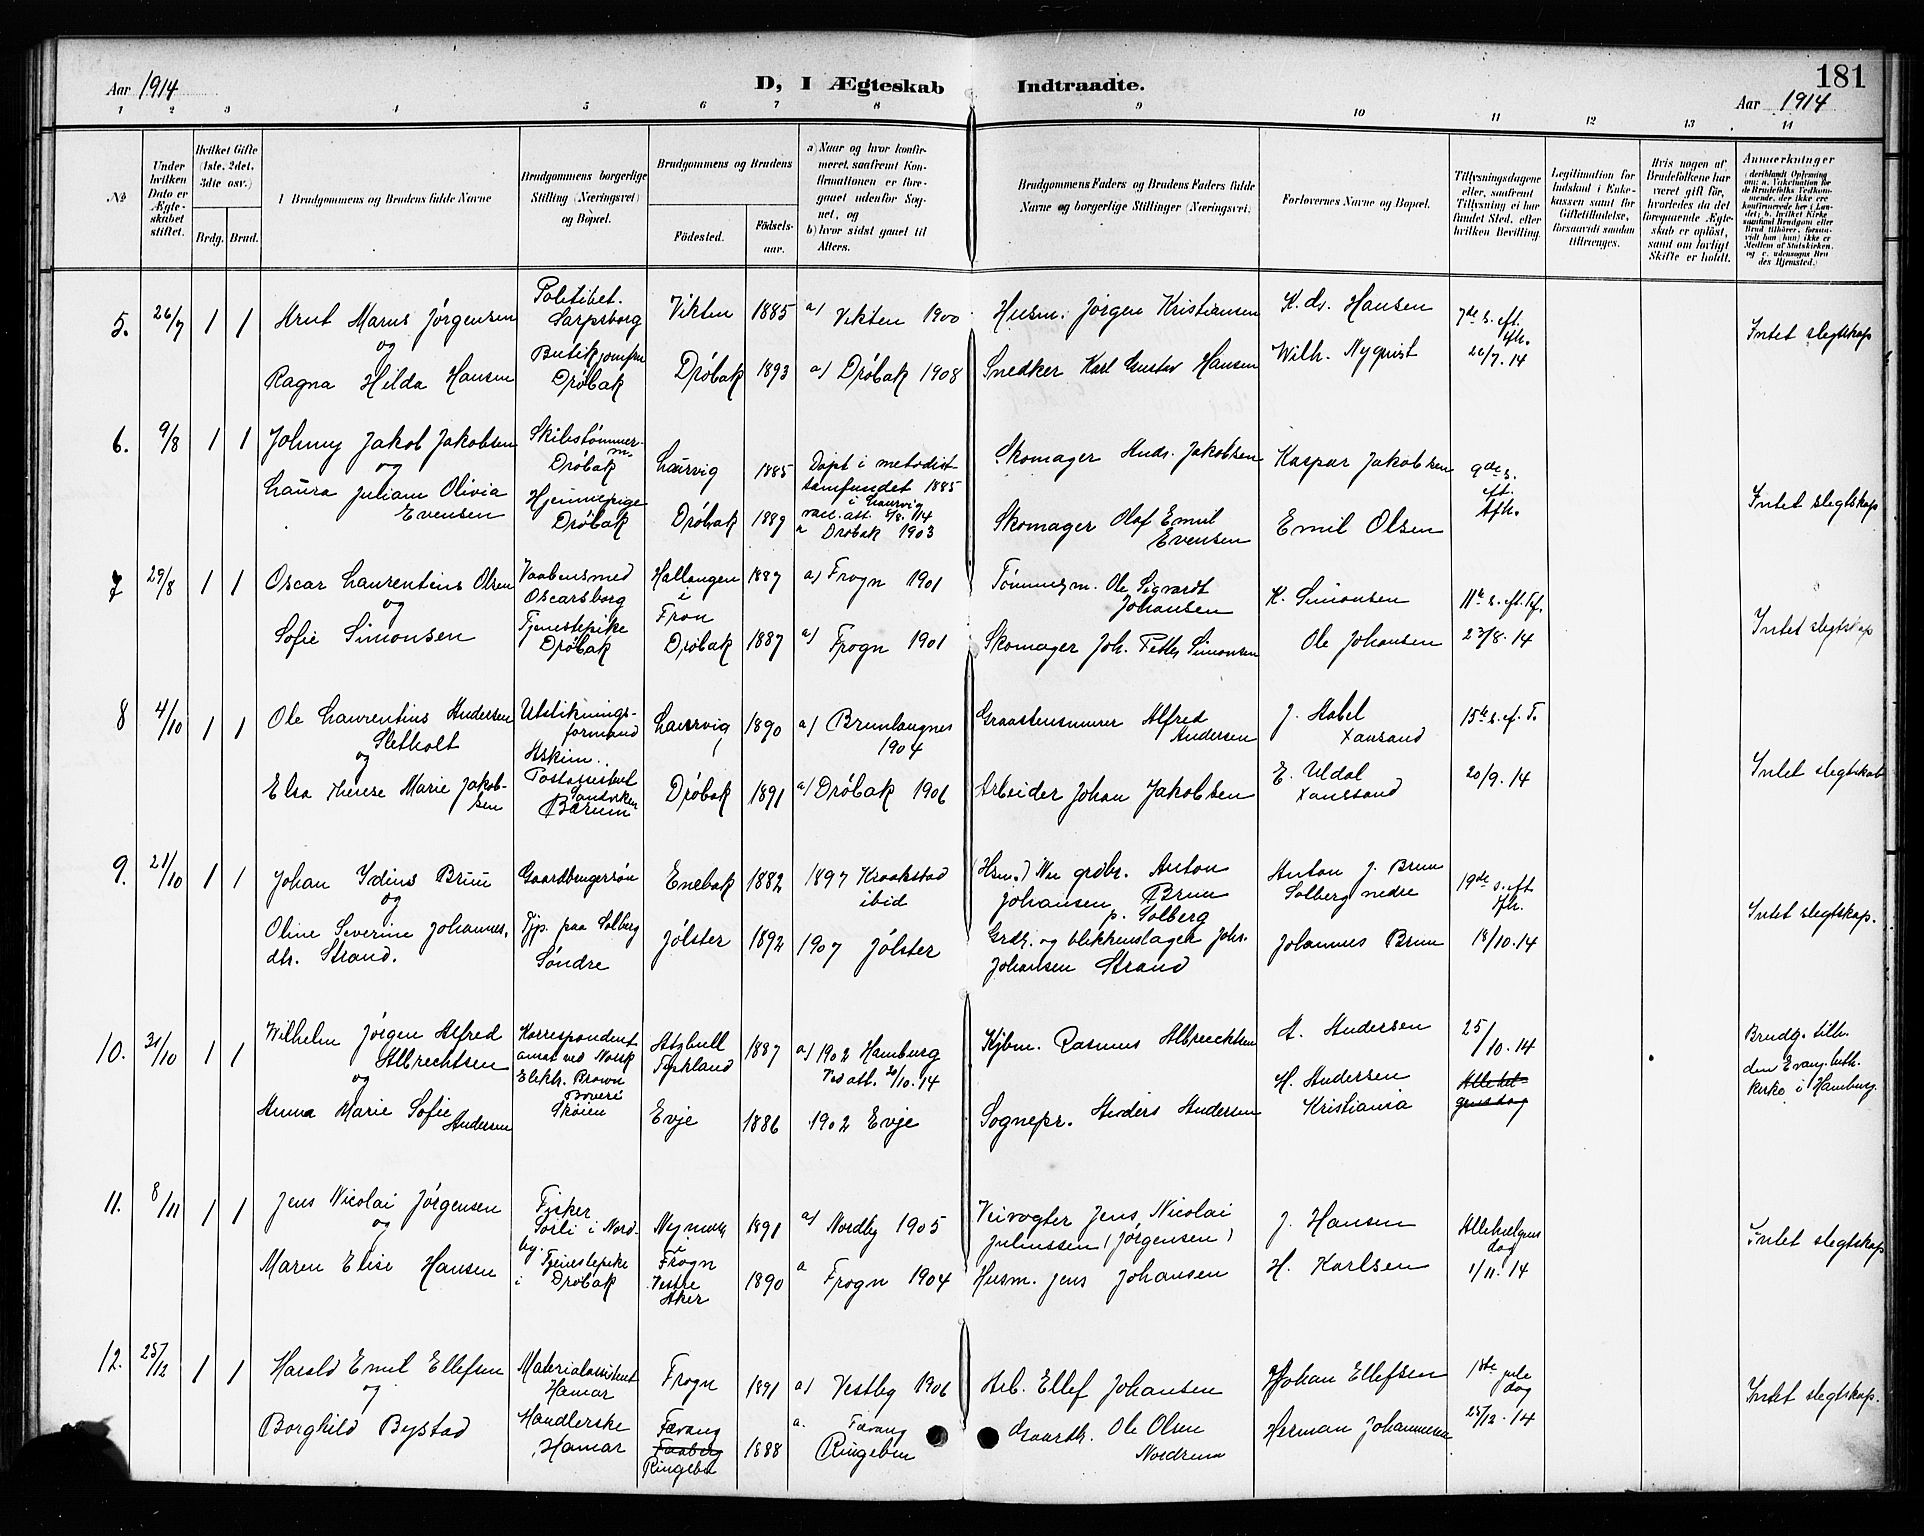 181
Aar 1914
D, I Ægteskab Indtraadte.
Aar 1914
1 2 3 4 5 6 7 8 9 10 11 12 13 14
№
Under hvilken Dato er Ægteskabet stiftet.
Hvilket Gifte (1ste, 2det, 3dte osv.)
Brdg. Brud.
I Brudgommens og Brudens fulde Navne
Brudgommens borgerlige Stilling (Næringsvei) og Bopæl.
Brudgommens og Brudens
Fødested.
Fødselsaar.
a) Naar og hvor konfirmeret, saafremt Konfirmationen er foregaaet udenfor Sognet, og
b) hvor sidst gaaet til Alters.
Brudgommens Faders og Brudens Faders fulde Navne og borgerlige Stillinger (Næringsvei).
Forlovernes Navne og Bopæl.
Tillysningsdagene eller, saafremt Tillysning ei har fundet Sted, efter hvilken Bevilling
Legitimation for Indskud i Enkekassen samt for Giftetilladelse, forsaavidt saadan tiltrænges.
Hvis nogen af Brudefolkene har været gift før, hvorledes da det foregaaende Ægteskab er opløst, samt om lovligt Skifte er holdt.
Anmerkninger
5. 26/7 1 1
Knut Marius Jörgensen
og
Ragna Hilda Hansen
Politibet.
Sarpsborg
Butikjomfru
Dröbak
Vikten 1885 a) Vikten 1900
Dröbak 1893 a) Dröbak 1908
Husm. Jörgen Kristiansen
Snedker Karl Gustav Hansen
K. Hansen
Wilh. Nyquist
7de s. eft.
26/7. 14
Intet slegtskap
6. 9/8 1 1
Johnny Jakob Jakobsen
og
Laura Juliane Olivia
Evensen
Skibstömmerm.
Dröbak
Hjemmepige
Dröbak
Laurvig 1885
Dröbak 1889
Döpt i metodist
samfundet 1885
i Laurvig
vac. att. 5/8. 14
a Dröbak 1903
Skomager Andr. Jakobsen
Skomager Olaf Emil
Evensen
Kaspar Jakobsen
Emil Olsen
9de s.
eft.
Intet slegtskap
7 29/8 1 1
Oscar Laurentius Olsen
og
Sofie Simonsen
Vaabensmed
Oscarsborg
Tjenestepike
Dröbak
Hallangen
i
Fron
Dröbak
1887 a) Frogn 1901
1887 a) Frogn 1901
Tömmerm. Ole Sigvardt
Johansen
Skomager Joh. Petter Simonsen
K. Simonsen
Ole Johansen
11te s. eft. Tf.
23/8. 14
Intet slegtskap
8 4/10 1 1
Ole Laurentius Andersen
Sletholt
og
Elsa Therese Marie Jakobsen
Utstikningsformand
Askim
Postassistent
Sandviken
Bærum
Laurvig 1890 a) Brunlangnes
1904
Dröbak 1891 a) Dröbak 1906
Graastensmurer Alfred
Andersen
Arbeider Johan Jakobsen
J. Stabel
Xansand
E. Uldal
Xanssand
15te s. ef. T.
20/9. 14
Intet slegtskab
9. 21/10 1 1
Johan Ydius Bruu
og
Oline Severine Johannes.
dtr. Strand.
Gaardbrugersön
Tjp. paa Solberg
Söndre
Enebak 1882 1897 Kraakstad
ibid
Jölster 1892 1907 Jölster
(Hsm.) Nu grdbr. Anton
Johansen Bruu
p. Solberg
Grdr. og blikkenslager Johs.
Johansen Strand
Anton J. Bruu
Solberg nedre
Johannes Bruu
19de s. eft
18/10. 14
Intet slegtskap.
10. 31/10 1 1
Wilhelm Jörgen Alfred
Albrechtsen
og
Anna Marie Sofie
Andersen
Korrespondent
ansat ved Norsk
Elektr. Brown
Boveri
Sköien
Atzbull
Tyskland 1887
Evje 1886
a) 1902 Hamburg
Vid att. 20/10. 14
1902 Evje
Kjbm. Rasmus Albrechtsen
Sognepr. Anders Andersen
A. Andersen
H. Andersen
Kristiania
25/10. 14
Brudg. tilh.
den Evang. luth.
kirke i Hamburg.
11. 8/11 1 1
Jens Nicolai Jörgensen
og
Maren Elise Hansen
Fisker
Sorli i Nordby.
Tjenestepike
i Dröbak
1891 a) Nordby 1905
Frogn
Vestre
Aker
1890 a Frogn 1904
Veivogter Jens Nicolai
Juliussen (Jörgensen)
Husm. Jens Johansen
J. Hansen
H. Karlsen
Allehelgens
dag
1/11. 14
Intet slegtskap
12. 25/12 1 1
Harald Emil Ellefsen
og
Borghild Bystad
Materialassistent
Hamar
Handlerske
Hamar
Frogn 1891 a) Vestby 1906
Færang
Faaberg
Ringebu
1888
a. Færang
Ringebu
Arb. Ellef Johansen
Gaardb. Ole Olsen
Nordrum
Johan Ellefsen
Herman Johannesen
1ste jule
dag
25/12. 14
Intet slegtskap.